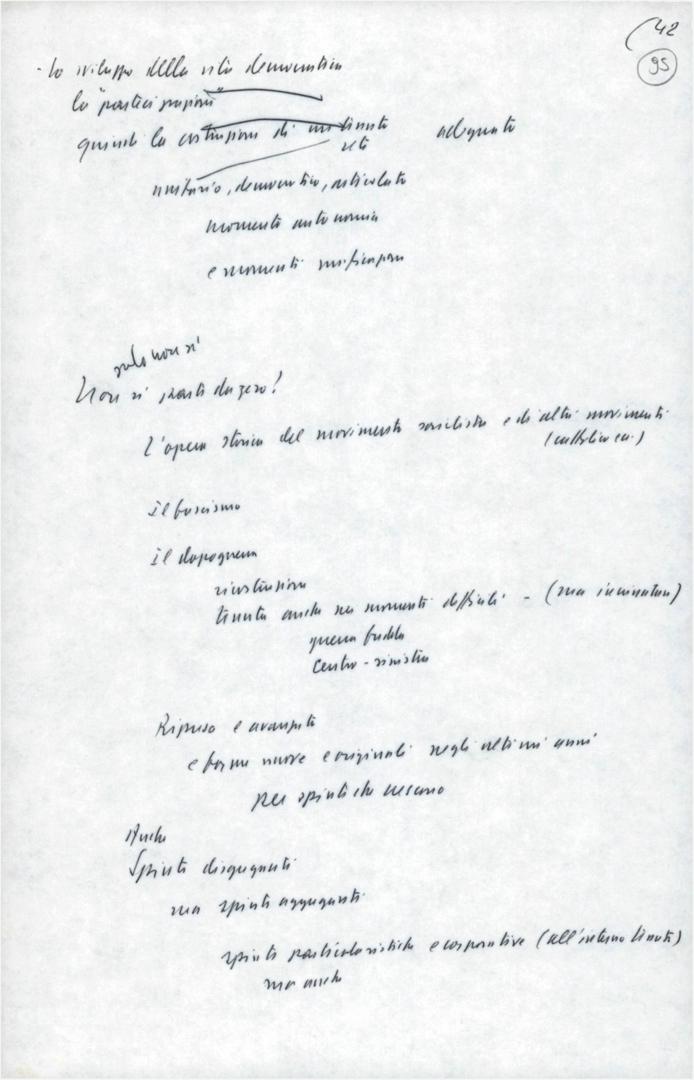 42
95
- Lo sviluppo della vita democratica
la "partecipazione"
quindi la costruzione di un tessuto adeguato
rete
unitario, democratico, articolato
momenti autonomia
e momenti unificazione
solo non si
Non si parte da zero!
L'opera storica del movimento socialista e di altri movimenti
(cattolico ecc.)
Il fascismo
Il dopoguerra
ricostruzione
tenuta anche nei momenti difficili - (ma incrinature)
guerra fredda
centro-sinistra
Ripresa e avanzata
e forme nuove e originali negli ultimi anni
per spinte che crescono
Anche
Spinte disgreganti
ma spinte aggreganti
spinte particolaristiche e corporative (all'interno tessuto)
ma anche